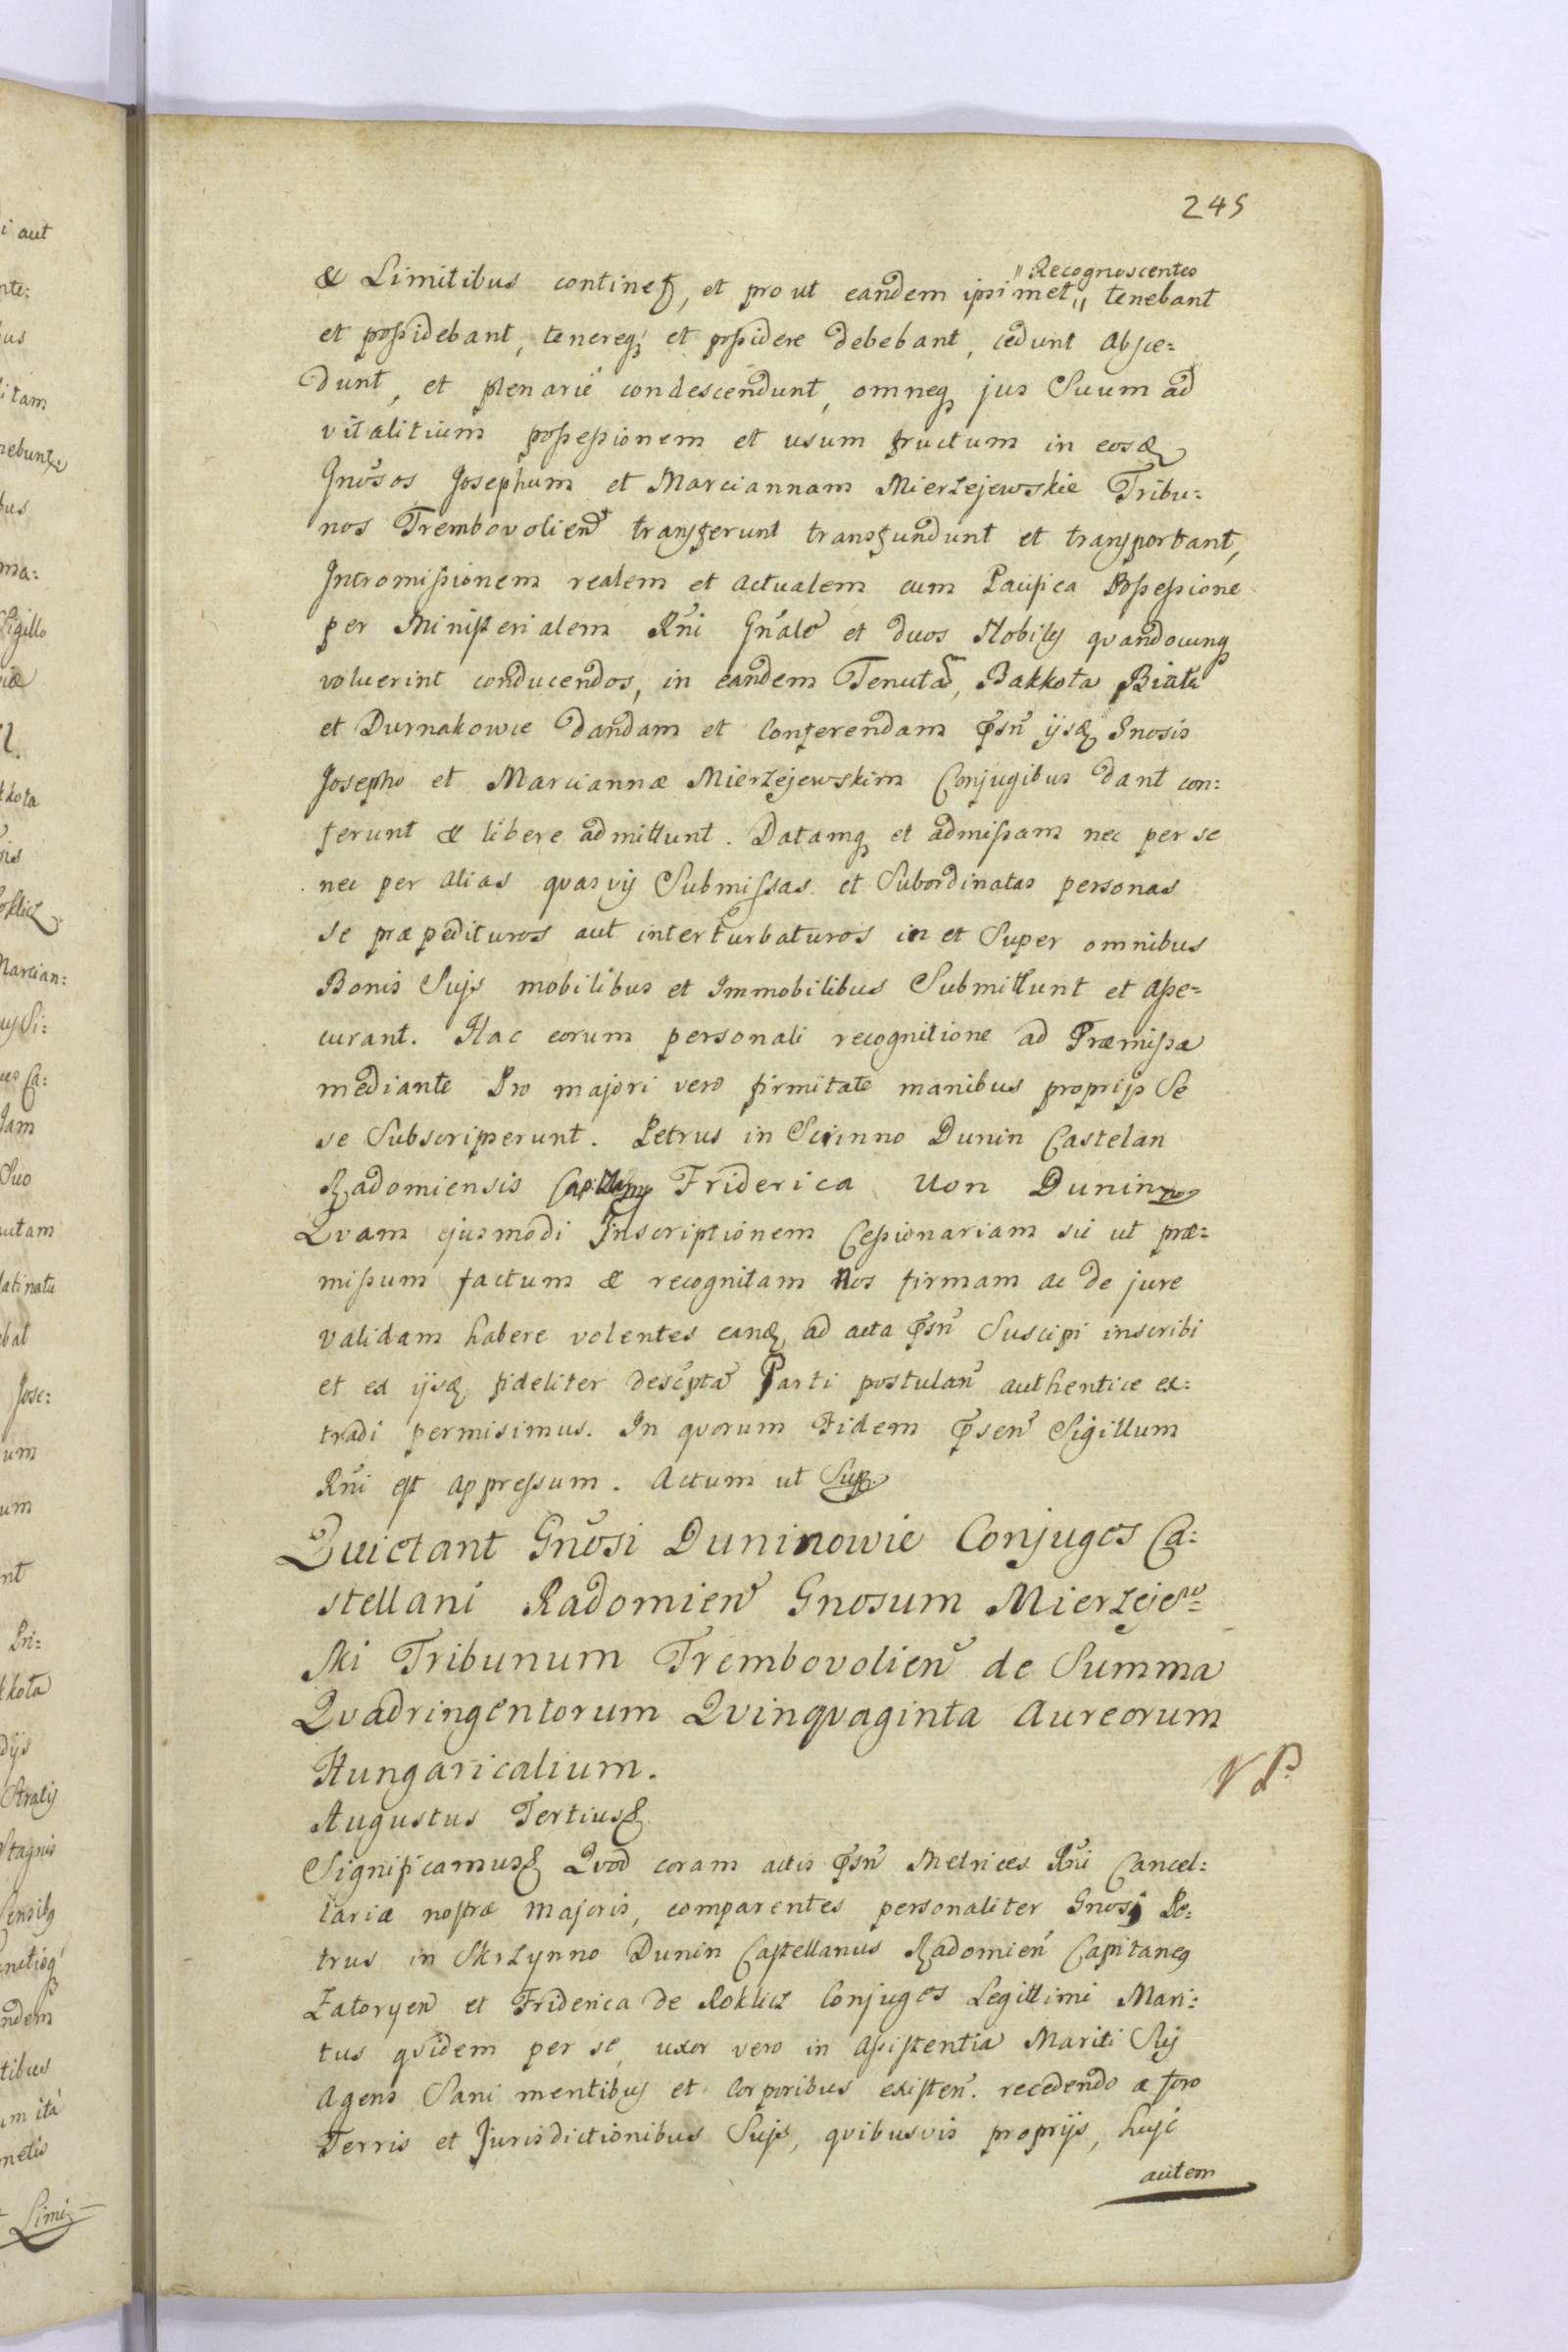 245
& Limitibus continet, et pro ut eandem ipsimet " Recognoscentes " tenebant
et possidebant, tenereq; et possidere debebant, cedunt absce=
dunt, et plenarie condescendunt, omneq; jus Suum ad
vitalitium possessionem et usum fructum in eosd
Gnosos Josephum et Marciannam Mierzejewskie Tribu=
nos Trembovolien transferunt transfundunt et transportant,
Intromissionem realem et actualem cum Pacifica Possessione
per Ministerialem Rni Gnale et duos Nobiles quandocunq
voluerint conducendos, in eandem Tenuta, Bakkota Biała
et Durnakowce dandam et Conferendam psn ijsd Gnosis
Josepho et Marciannæ Mierzejewskim Conjugibus dant con=
ferunt & libere admittunt. Datamq et admissam nec per se
nec per alias quasvis Submissas et Subordinatas personas
se præpedituros aut interturbaturos in et Super omnibus
Bonis Suis mobilibus et Immobilibus Submittunt et asse=
curant. Hac eorum personali recognitione ad Præmissa
mediante Pro majori vero firmitate manibus proprijs Se
se Subscripserunt. Petrus in Scrinno Dunin Castelan
Radomiensis Frid­erica Von Duninno
Qvam ejusmodi Inscriptionem Cessionariam sic ut præ=
missum factum & recognitam Nos firmam ac de jure
validam habere volentes eand ad acta psn Suscipi inscribi
et ex ijsd fideliter descpta Parti postulan authentice ex=
tradi permisimus. In qvorum Fidem psen Sigillum
Rni est appressum. Actum ut Sup.
Quietant Gnosi Duninowie Conjuges Ca=
stellani Radomien Gnosum Mierzejew=
ski Tribunum Trembovolien de Summa
Qvadringentorum Qvinqvaginta Aureorum
Hungaricalium.
Augustus Tertius &
Significamus & Qvod coram actis psn Metrices Rni Cancel=
lariæ nostræ Majoris, comparentes personaliter Gnosi Pe=
trus in Skrzynno Dunin Castellanus Radomien Capitaneq
Zatoryen et Friderica de Roklicz Conjuges Legittimi Mari=
tus qvidem per se, uxor vero in Assistentia Mariti Sui
Agens Sani mentibus et Corporibus existen. recedendo a foro
Terris et Jurisdictionibus Suis, qvibusvis proprijs, huic
autem